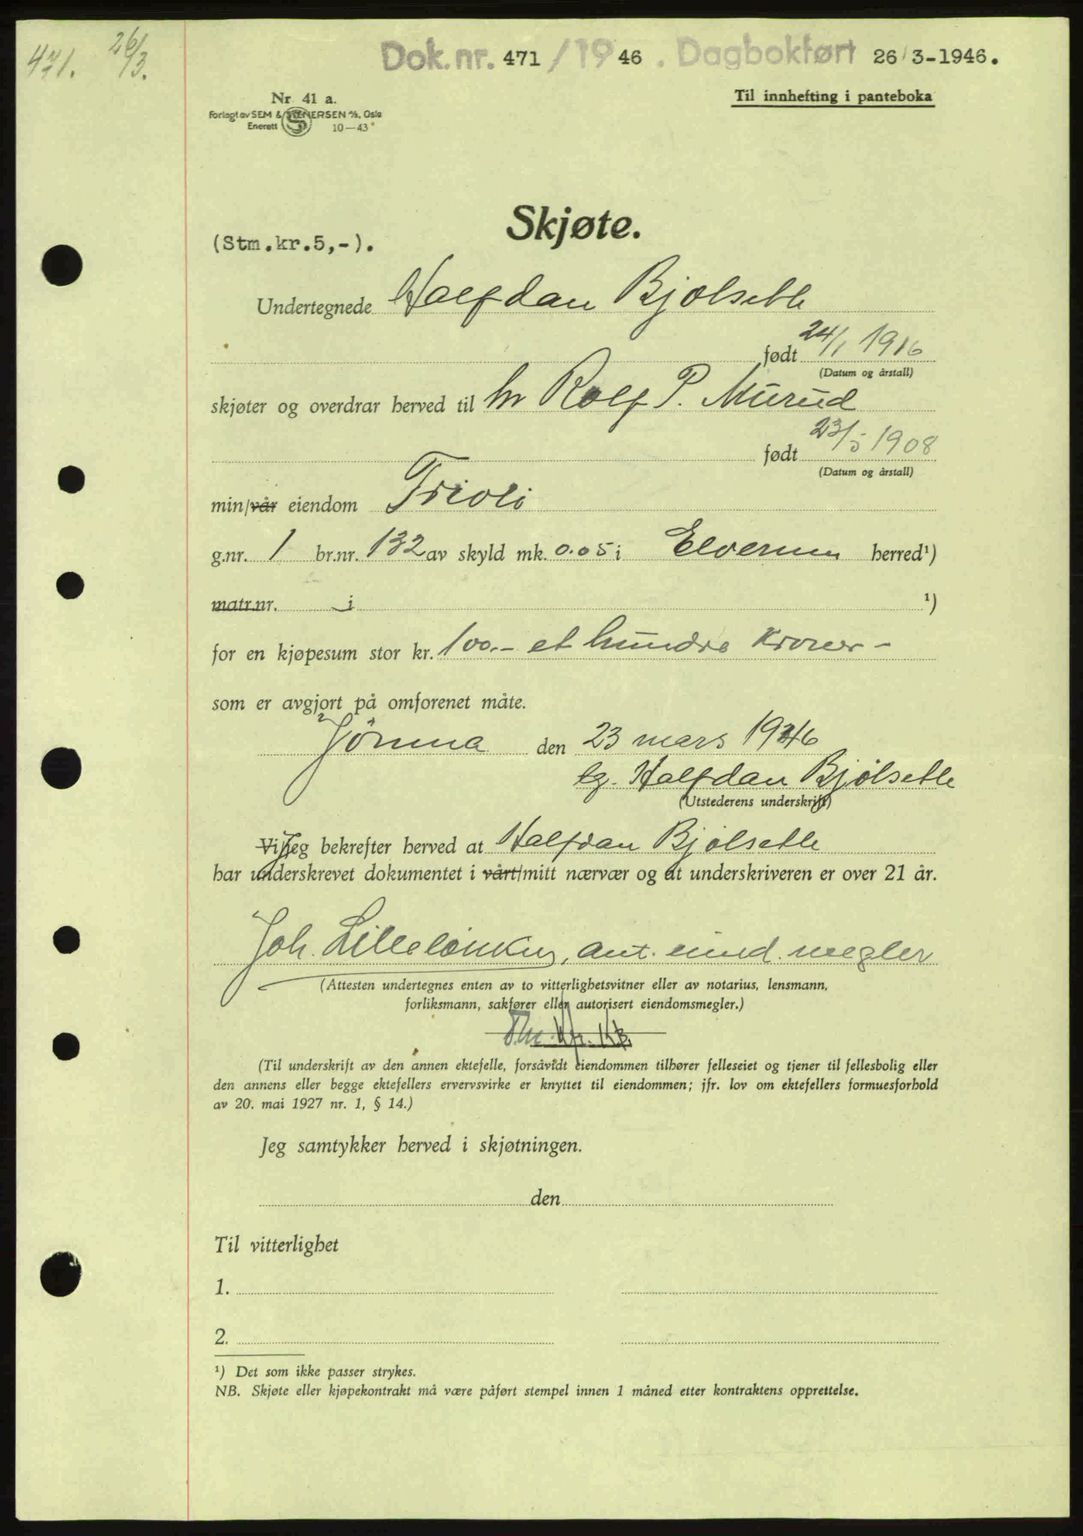 471. 26/3.
Dok.nr. 471 /1946. Dagbokført 26/3-1946.
Nr 41 a.
Til innhefting i panteboka
Forlagt av SEM & STENERSEN A/S, Oslo
Enerett S 10—43
Skjøte.
(Stm.kr.5,-).
Undertegnede Halfdan Bjølseth
født 24/1 1916
(Datum og årstall)
skjøter og overdrar herved til hr Rolf P. Murud
født 23/5 1908
(Datum og årstall)
min/vår eiendom Trioli
g.nr. 1 br.nr. 132 av skyld mk. 0.05 i Elverum herred¹)
matr.nr. i ¹)
for en kjøpesum stor kr. 100.- et hundre kroner -
som er avgjort på omforenet måte.
Jömna den 23 mars 1946
Halfdan Bjølseth
(Utstederens underskrift)
Vi/Jeg bekrefter herved at Halfdan Bjølseth
har underskrevet dokumentet i vårt/mitt nærvær og at underskriveren er over 21 år.
Joh. aut. eiend. megler
(Attesten undertegnes enten av to vitterlighetsvitner eller av notarius, lensmann,
forliksmann, sakfører eller autorisert eiendomsmegler.)
(Til underskrift av den annen ektefelle, forsåvidt eiendommen tilhører felleseiet og tjener til fellesbolig eller
den annens eller begge ektefellers ervervsvirke er knyttet til eiendommen; jfr. lov om ektefellers formuesforhold
av 20. mai 1927 nr. 1, § 14.)
Jeg samtykker herved i skjøtningen.
den
Til vitterlighet
1.
2.
¹) Det som ikke passer strykes.
NB. Skjøte eller kjøpekontrakt må være påført stempel innen 1 måned etter kontraktens opprettelse.